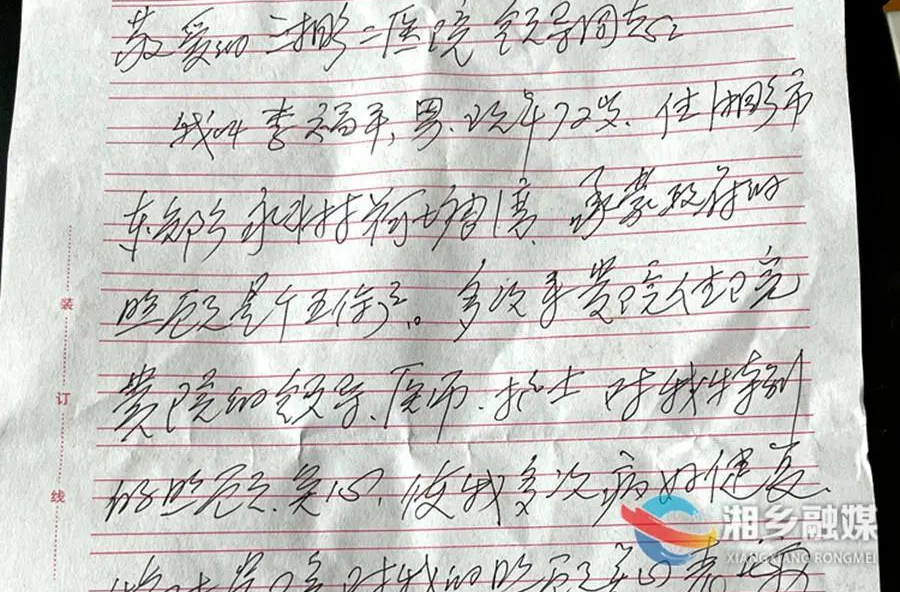 敬爱的湘乡二医院领导同志:
我叫李福平,男.现年72岁.住湘乡市
东郊乡永水村荷塘 承蒙政府的
照顾是个五保户。多次来贵院住院
贵院的领导、医师.护士 对我特别
的照顾.关心.使我多次病好健康.
贵院对我的照顾关心表示
装
订
线
湘乡融媒
XIANGXIANG RONGMEI